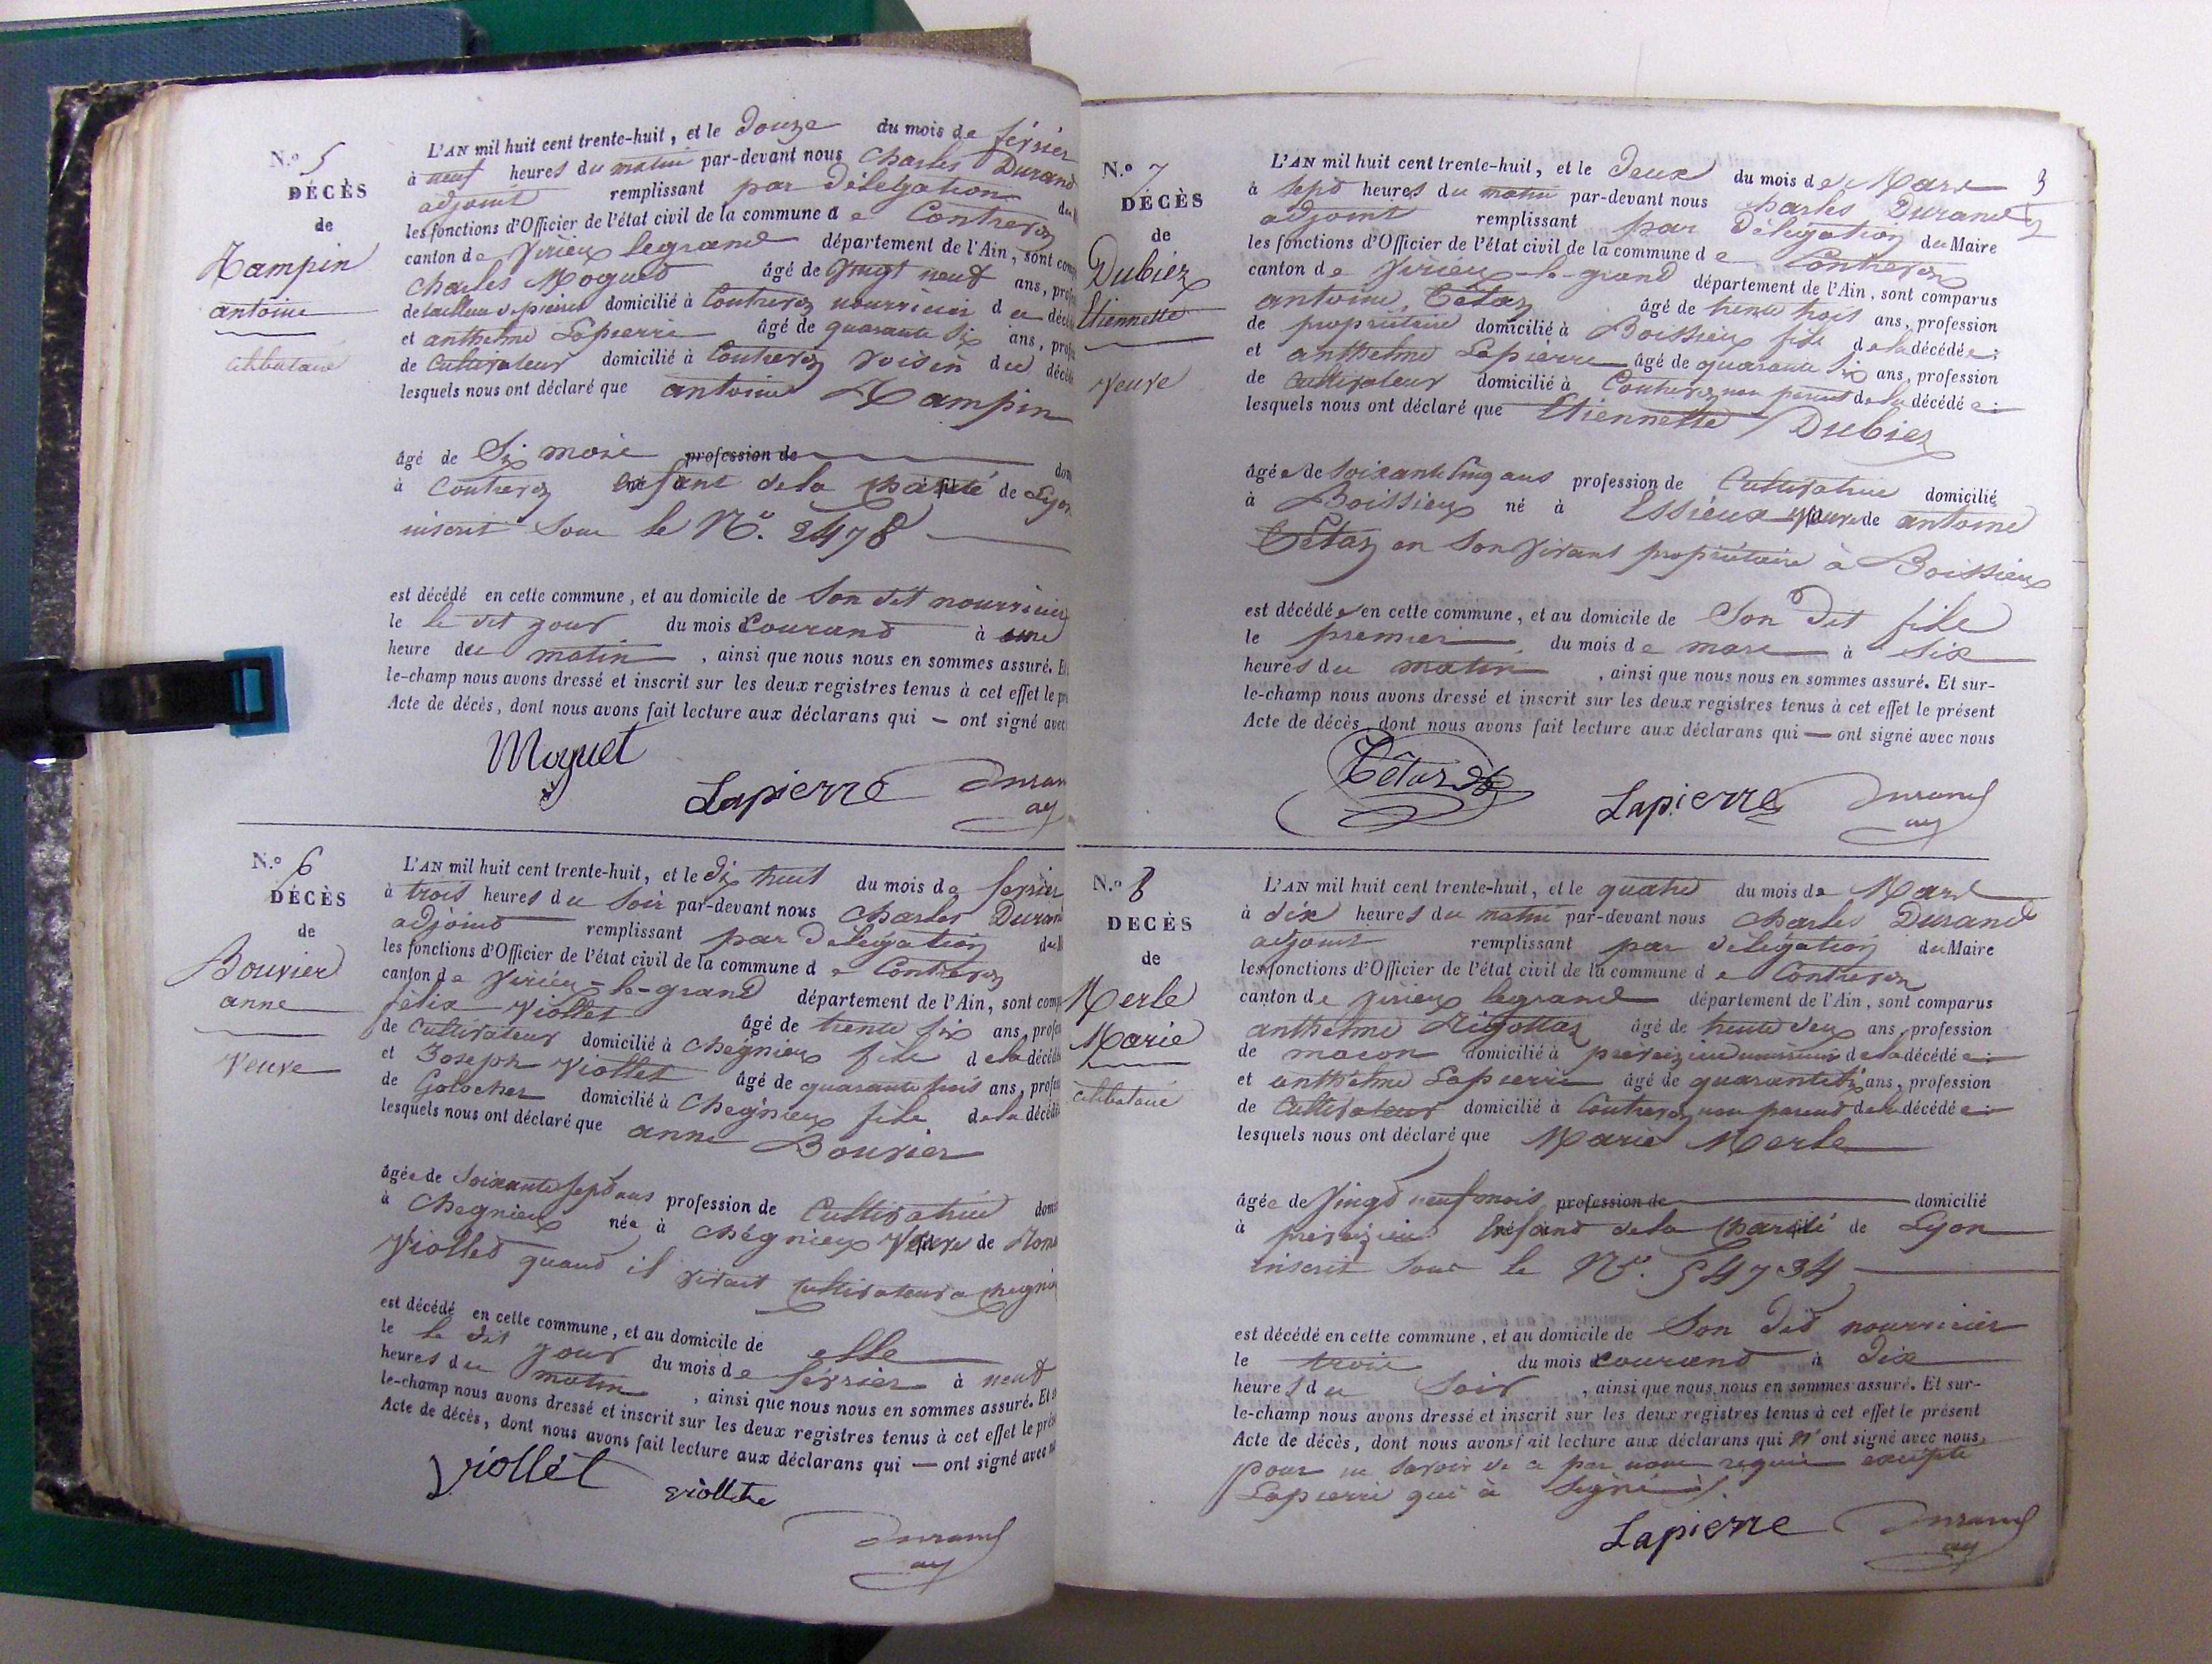 N.o 5
DÉCÈS
de
Rampin
antoine
célibataire
L'AN mil huit cent trente-huit, et le douze du mois de février
à neuf heures du matin par-devant nous Charles Durand
adjoint remplissant par délégation du
les fonctions d'Officier de l'état civil de la commune de Contrevoz
canton de Virieu legrand département de l'Ain, sont
Charles Moguet âgé de vingt neuf ans,
de tailleur de pierres domicilié à Contrevoz nourricier du
et anthelme Lapierre âgé de quarante six ans,
de Cultivateur domicilié à Contrevoz voisin du
lesquels nous ont déclaré que antoine Rampin
âgé de Six mois profession de
à Contrevoz Enfant de la Charité de Lyon
inscrit sous le N.o 2478
est décédé en cette commune, et au domicile de Son dit nourricier
le le dit jour du mois Courand à une
heure du matin, ainsi que nous nous en sommes assuré. Et
le-champ nous avons dressé et inscrit sur les deux registres tenus à cet effet le
Acte de décès, dont nous avons fait lecture aux déclarans qui — ont signé avec
Moguet
Lapierre Durand
adj
N.o 6
DÉCÈS
de
Bouvier
anne
Veuve
L'AN mil huit cent trente-huit, et le dix huit du mois de fevrier
à trois heures du Soir par-devant nous Charles Durand
adjoind remplissant par délégation du
les fonctions d'Officier de l'état civil de la commune de Contrevoz
canton de Virieu-le-grand département de l'Ain, sont
félix Viollet âgé de trente six ans,
de Cultivateur domicilié à Chégnieu fils de la
et Joseph Viollet âgé de quarante trois ans,
de Galocher domicilié à Chegnieu fils de la
lesquels nous ont déclaré que anne Bouvier
âgée de Soixante sept ans profession de Cultivatrice
à Chegnieu née à Chégnieu Veuve de
Viollet quand il vivait Cultivateur a
est décédé en cette commune, et au domicile de elle
le le dit jour du mois de février à neuf
heures du matin, ainsi que nous nous en sommes assuré. Et
le-champ nous avons dressé et inscrit sur les deux registres tenus à cet effet le
Acte de décès, dont nous avons fait lecture aux déclarans qui — ont signé avec
Viollet
Durand
adj
3
N.o 7
DÉCÈS
de
Dubiez
Etiennette
veuve
L'AN mil huit cent trente-huit, et le deux du mois de Mars
à sept heures du matin par-devant nous Charles Durand
adjoint remplissant par délégation du Maire
les fonctions d'Officier de l'état civil de la commune de Contrevoz
canton de Virieu-le-grand département de l'Ain, sont comparus
antoine Tétaz âgé de trente trois ans, profession
de propriétaire domicilié à Boissieu fils de la décédée
et anthelme Lapierre âgé de quarante six ans, profession
de Cultivateur domicilié à Contrevoz non parent de la décédée
lesquels nous ont déclaré que Etiennette Dubiez
âgée de Soixante Cinq ans profession de Cultivatrice domicilié
à Boissieu né à Essieux veuve de antoine
Tétaz en Son Vivant propriétaire à Boissieu
est décédée en cette commune, et au domicile de Son dit fils
le premier du mois de mars à Six
heures du matin, ainsi que nous nous en sommes assuré. Et sur-
le-champ nous avons dressé et inscrit sur les deux registres tenus à cet effet le présent
Acte de décès, dont nous avons fait lecture aux déclarans qui — ont signé avec nous
Tétaz
Lapierre Durand
adj
N.o 8
DÉCÈS
de
Merle
Marie
célibataire
L'AN mil huit cent trente-huit, et le quatre du mois de Mars
à dix heures du matin par-devant nous Charles Durand
adjoint remplissant par délégation du Maire
les fonctions d'Officier de l'état civil de la commune de Contrevoz
canton de Virieu legrand département de l'Ain, sont comparus
anthelme Rigottaz âgé de trente deux ans, profession
de macon domicilié à preveizieu nourricier de la décédée
et anthelme Lapierre âgé de quarante six ans, profession
de Cultivateur domicilié à Contrevoz non parend de la décédée
lesquels nous ont déclaré que Marie Merle
âgée de Vingd neuf mois profession de domicilié
à preveizieu Enfand de la Charité de Lyon
inscrit sous le N.o 54734
est décédé en cette commune, et au domicile de Son dit nourricier
le trois du mois Courand à dix
heures du Soir, ainsi que nous nous en sommes assuré. Et sur-
le-champ nous avons dressé et inscrit sur les deux registres tenus à cet effet le présent
Acte de décès, dont nous avons fait lecture aux déclarans qui n'ont signé avec nous
pour ne savoir de ce par nous requis excepté
Lapierre qui à Signé
Lapierre Durand
adj